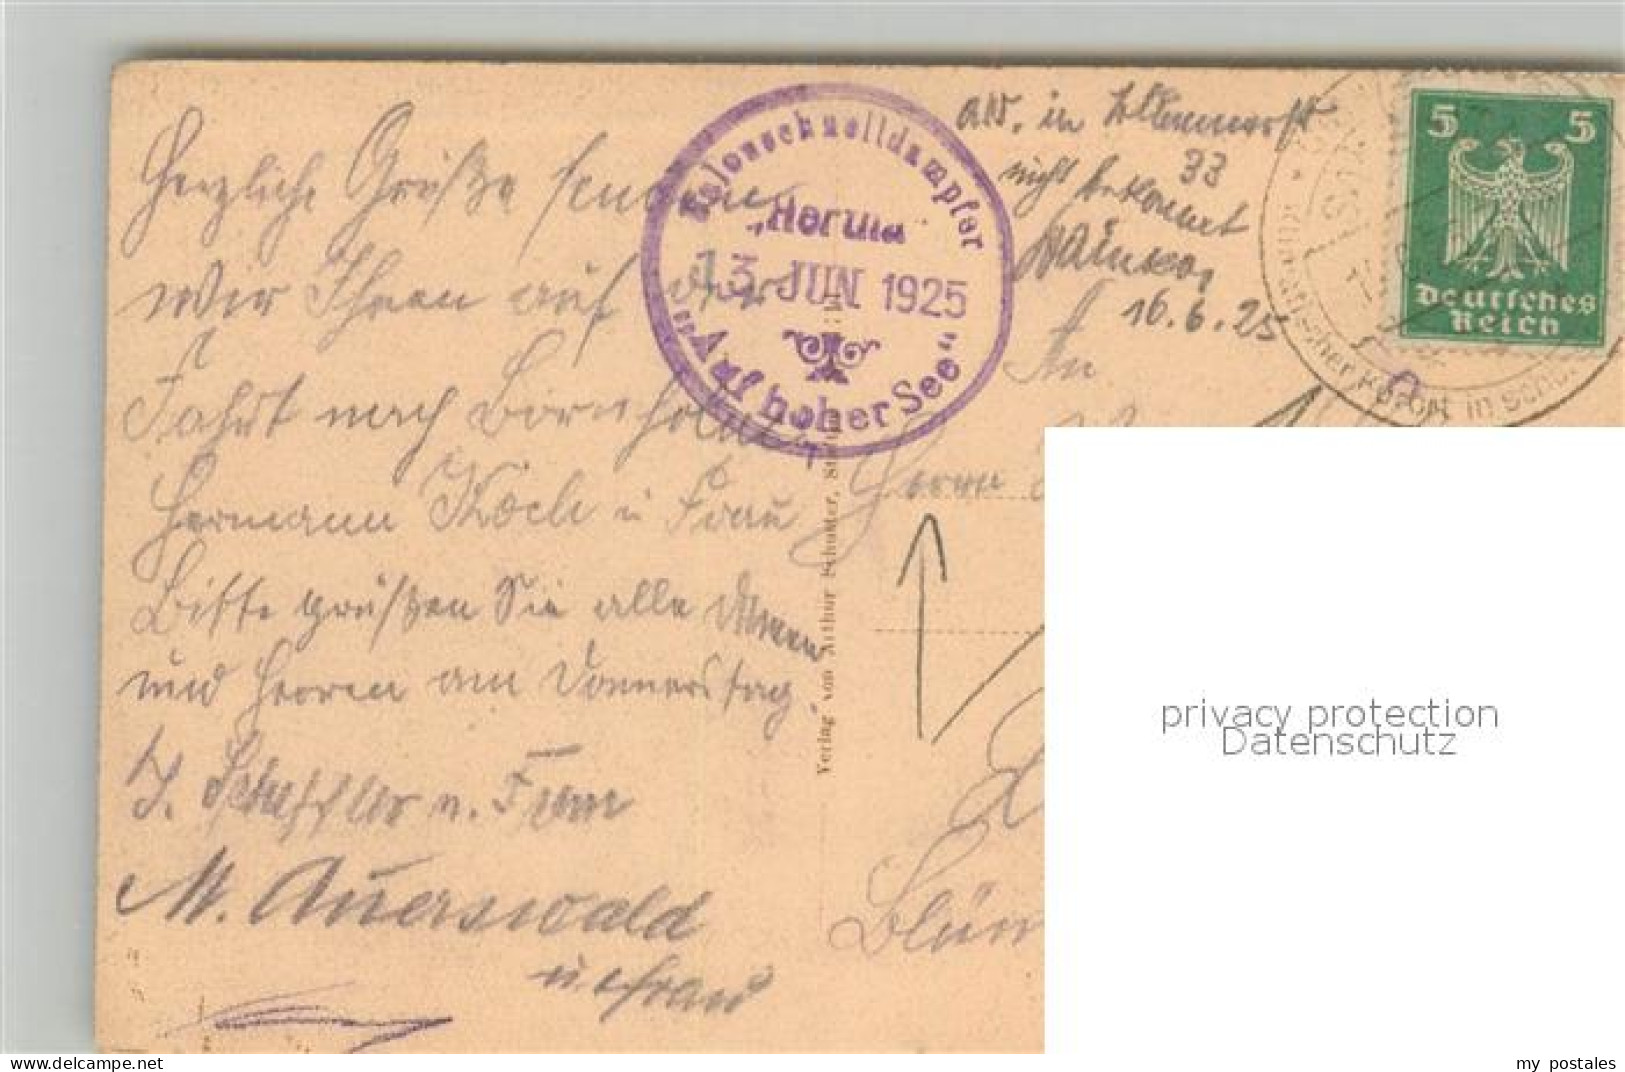 Herzliche Grüße senden
wir Ihnen auf der
Fahrt nach Bornholm
Hermann Koch u Frau
Bitte grüßen Sie alle Damen
und Herren am Donnerstag.
u. Frau
M. Auerswald
u. Frau
Salonschnelldampfer
„Hertha“
13 JUN 1925
„Auf hoher See“
Verlag von Arthur Schuster, Stettin
adr. in
33
nicht bekannt
16.6.25
5 5
Deutsches
Reich
in
An
Herrn
privacy protection
Datenschutz
my postales
www.delcampe.net